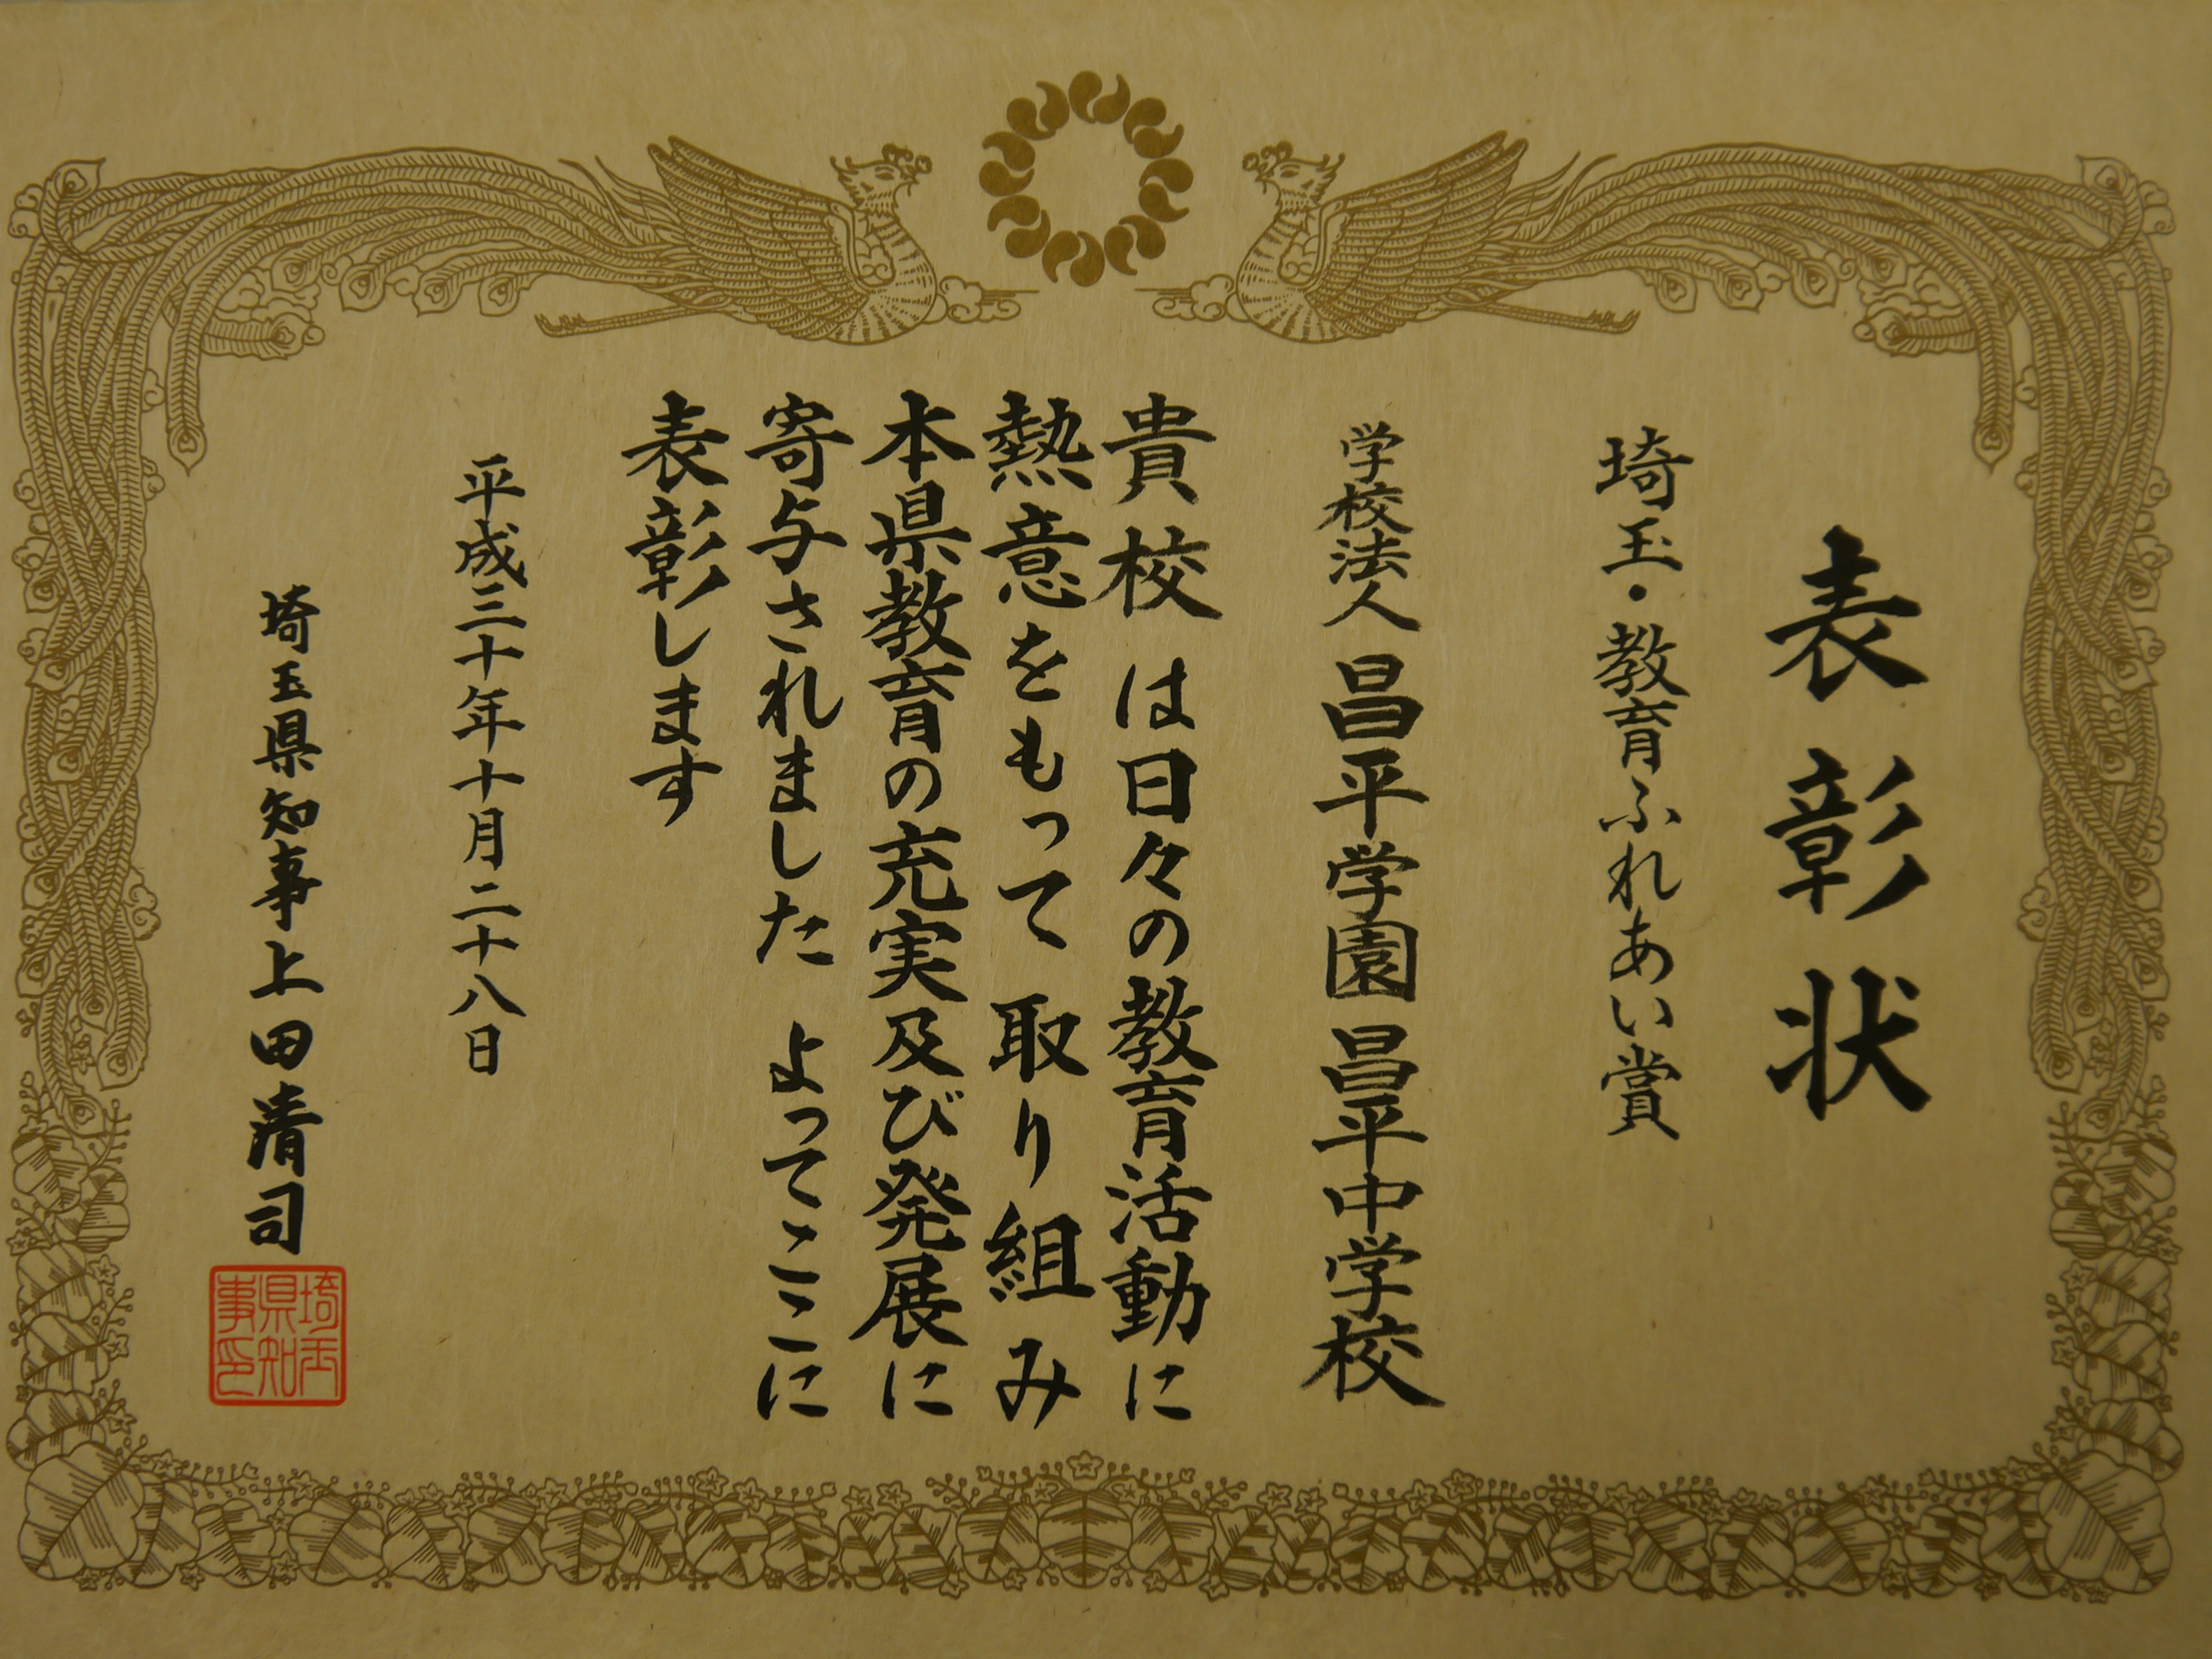 表彰状
埼玉・教育ふれあい賞
学校法人 昌平学園 昌平中学校
貴校は日々の教育活動に
熱意をもって取り組み
本県教育の充実及び発展に
寄与されました よってここに
表彰します
平成三十年十月二十八日
埼玉県知事 上田清司
埼玉
県知
事印